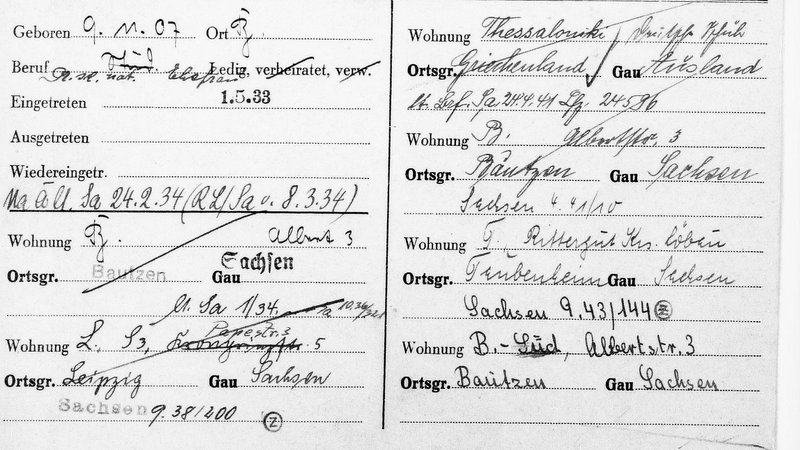 Geboren 9. 11. 07 Ort B.
Beruf Stud.
Dr. rer. nat. Ehefrau Ledig, verheiratet, verw.
Eingetreten 1.5.33
Ausgetreten
Wiedereingetr.
24.2.34 (RL/Sa v. 8.3.34)
Wohnung B. Albert 3
Ortsgr. Bautzen Gau Sachsen
Sa 1/34.
Papestr. 3
Wohnung L. S3, 5
Ortsgr. Leipzig Gau Sachsen
Sachsen 9.38/200 Z
Wohnung Thessaloniki Deutsche Schule
Ortsgr. Griechenland Gau Ausland
lt. Bef. Sa 24.4.41 Lfg 24596
Wohnung B. Albertstr. 3
Ortsgr. Bautzen Gau Sachsen
Sachsen 4.41/10
Wohnung T. Rittergut Krs. Löbau
Ortsgr. Taubenheim Gau Sachsen
Sachsen 9.43/144 Z
Wohnung B.-Süd, Albertstr. 3
Ortsgr. Bautzen Gau Sachsen